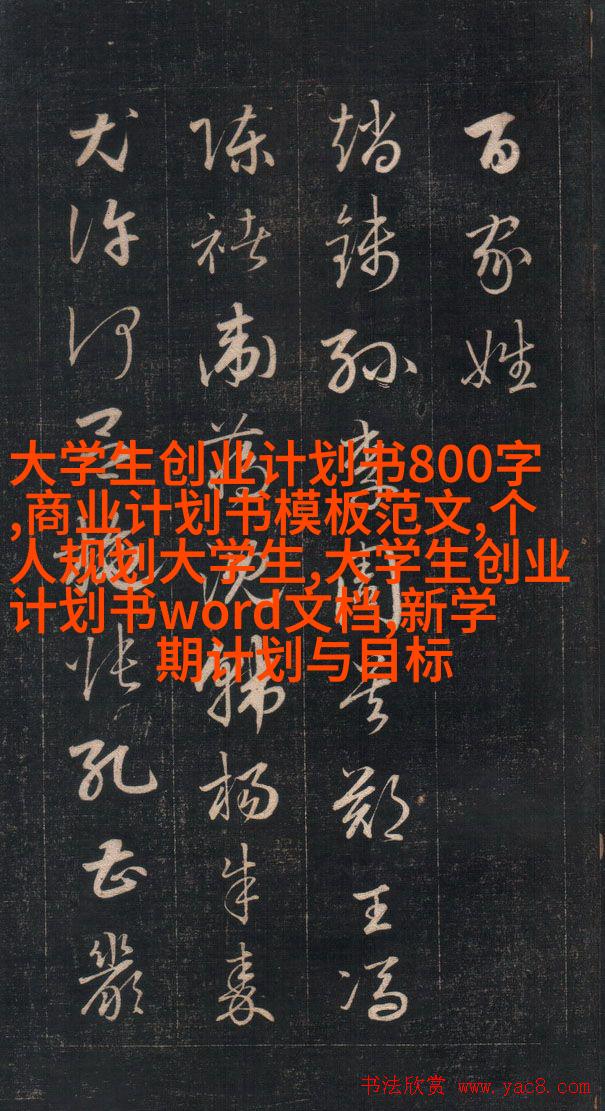 百家姓
趙錢孫李周吳鄭王馮
陳褚衛蔣沈韓楊朱秦
尤許何呂施張孔曹嚴
大学生创业计划书800字
,商业计划书模板范文,个
人规划大学生,大学生创业
计划书word文档,新学
期计划与目标
书法欣赏 www.yac8.com